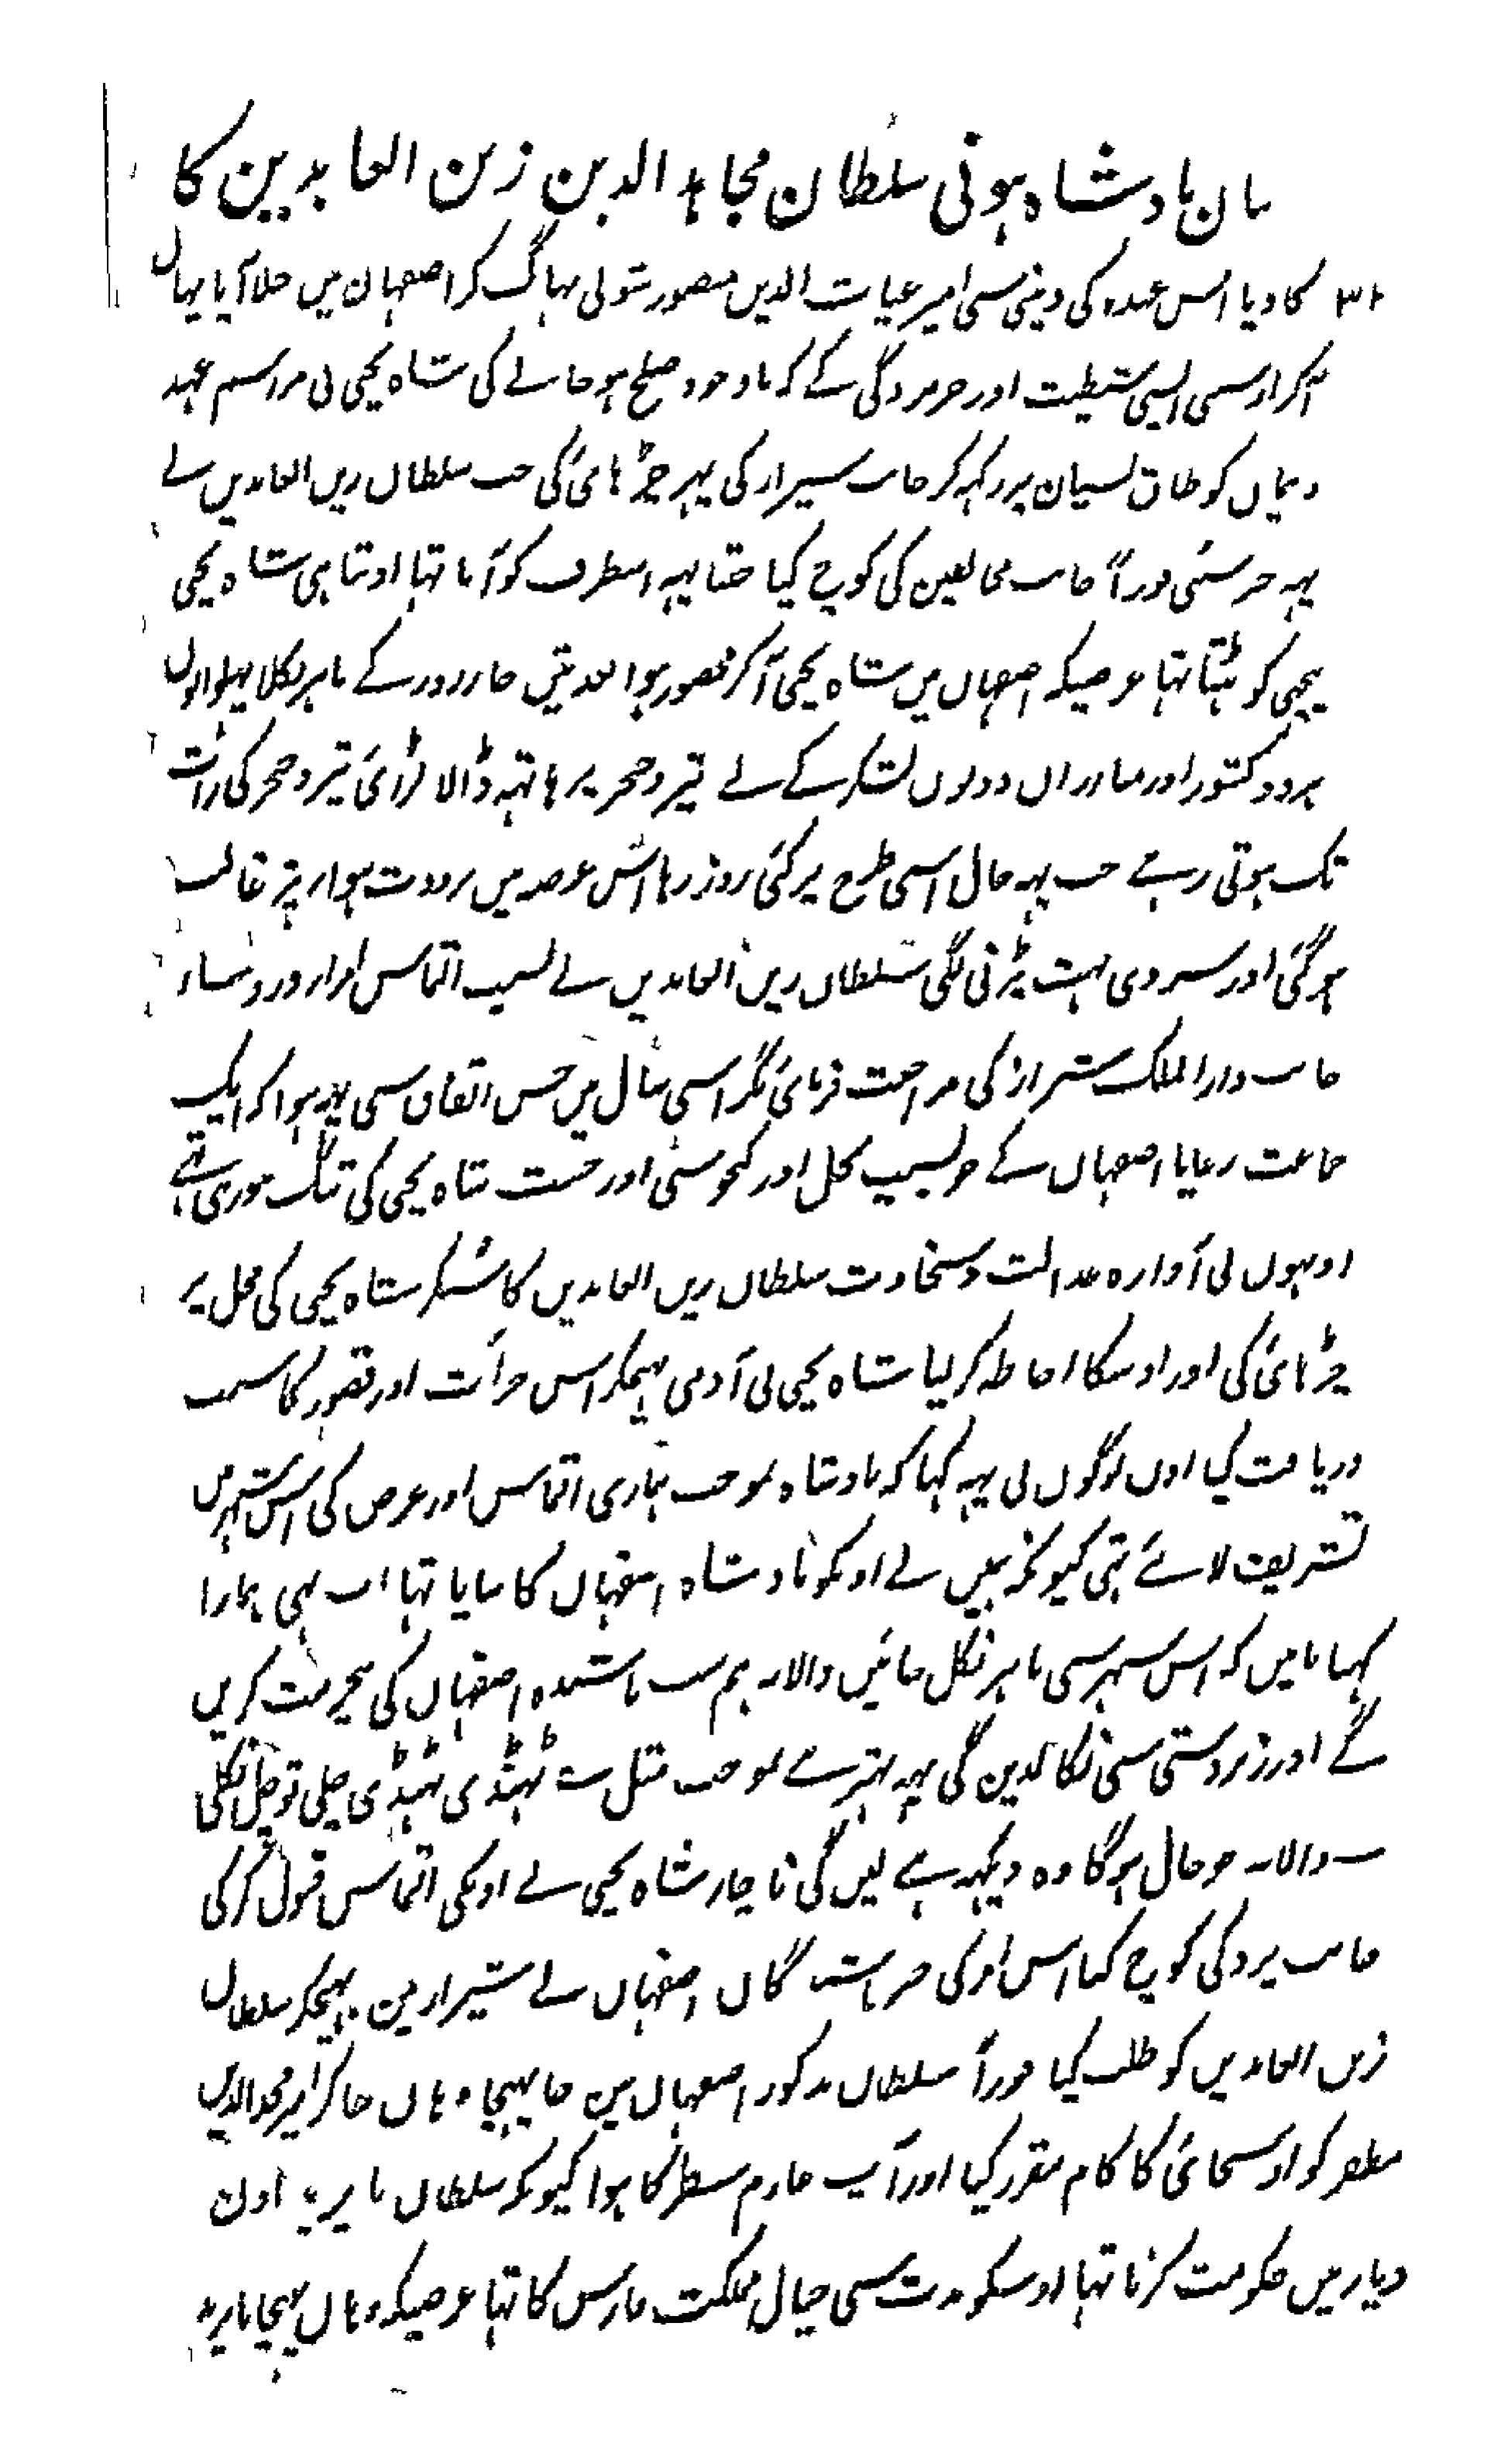 بیان بادشاہ ہونی سلطان مجاہد الدین زین العابدین کا
۳۲ کا دیا اس عہدہ کی دینی سی امیر غیاث الدین منصور شولی بہاگ کر اصفہان میں چلا آیا یہاں
آکر اوسسی ایسی شیطنت اور حرمزدگی کے کہ باوجود صلح ہوجانے کی شاہ یحیی نی مراسم عہد
و پیمان کو طاق نسیان پر رکہہ کر جانب شیراز کی پہر چڑہائی کی جب سلطان زین العابدین نے
یہہ خبر سنی فوراً جانب مخالفین کی کوچ کیا جتنا یہہ اسطرف کو آتا تہا اوتنا ہی شاہ یحیی
پیچہی کو ہٹتا تہا غرضیکہ اصفہان میں شاہ یحیی آکر محصور ہوا بعد تین چار روز کے باہر نکلا پہلوانان
ہر دو کشور اور مبارزان دونوں لشکر کے نے تیر و خنجر پر ہاتہہ ڈالا لڑائی تیر و خنجر کی رات
تک ہوتی رہے جب یہہ حال اسی طرح پر کئی روز رہا اس عرصہ میں برودت ہوا پر غالب
ہوگئی اور سردی بہت پڑنی لگی سلطان زین العابدین نے بسبب التماس امرا و روساء
جانب دارالملک شیراز کی مراجعت فرمائی مگر اسی سال میں حسن اتفاق سی یہہ ہوا کہ ایک
جماعت رعایا اصفہان کے جو بسبب بخل اور کنجوسی اور خست شاہ یحیی کی تنگ ہو رہی تہے
اونہوں نی آوازہ عدالت و سخاوت سلطان زین العابدین کا سنکر شاہ یحیی کی محل پر
چڑہائی کی اور اوسکا احاطہ کر لیا شاہ یحیی نی آدمی بہیجکر اس جرأت اور قصور کا سبب
دریافت کیا اون لوگوں نی یہہ کہا کہ بادشاہ بموجب ہماری التماس اور عرض کی اس شہر میں
تشریف لائے تہی کیونکہ ہمیں نے اونکو بادشاہ اصفہان کا بنایا تہا اب بہی ہمارا
کہا مانیں کہ اس شہر سی باہر نکل جائیں والا نہ ہم سب باشندہ اصفہان کی بیحرمت کریں
گے اور زبردستی سی نکالدین گی یہہ بہتر ہے بموجب مثل ؎ ٹہنڈی ٹہنڈی چلی تو چل نکلی
؎ والا نہ جو حال ہوگا وہ دیکہہ ہے لیں گی ناچار شاہ یحیی نے اونکی التماس قبول کرکی
جانب یزد کی کوچ کیا اس امر کی خبر باشندگان اصفہان نے شیراز مین بہیجکر سلطان
زین العابدین کو طلب کیا فوراً سلطان مذکور اصفہان مین جا پہنچا وہاں جاکر امیر مجدالدین
مظفر کو اوسجائی کا کام مقرر کیا اور آپ عازم سطر کا ہوا کیونکہ سلطان بایزید اون
دیار میں حکومت کرتا تہا اوسکو مدت سی خیال مملکت فارس کا تہا غرضیکہ وہاں پہنچا بایزید